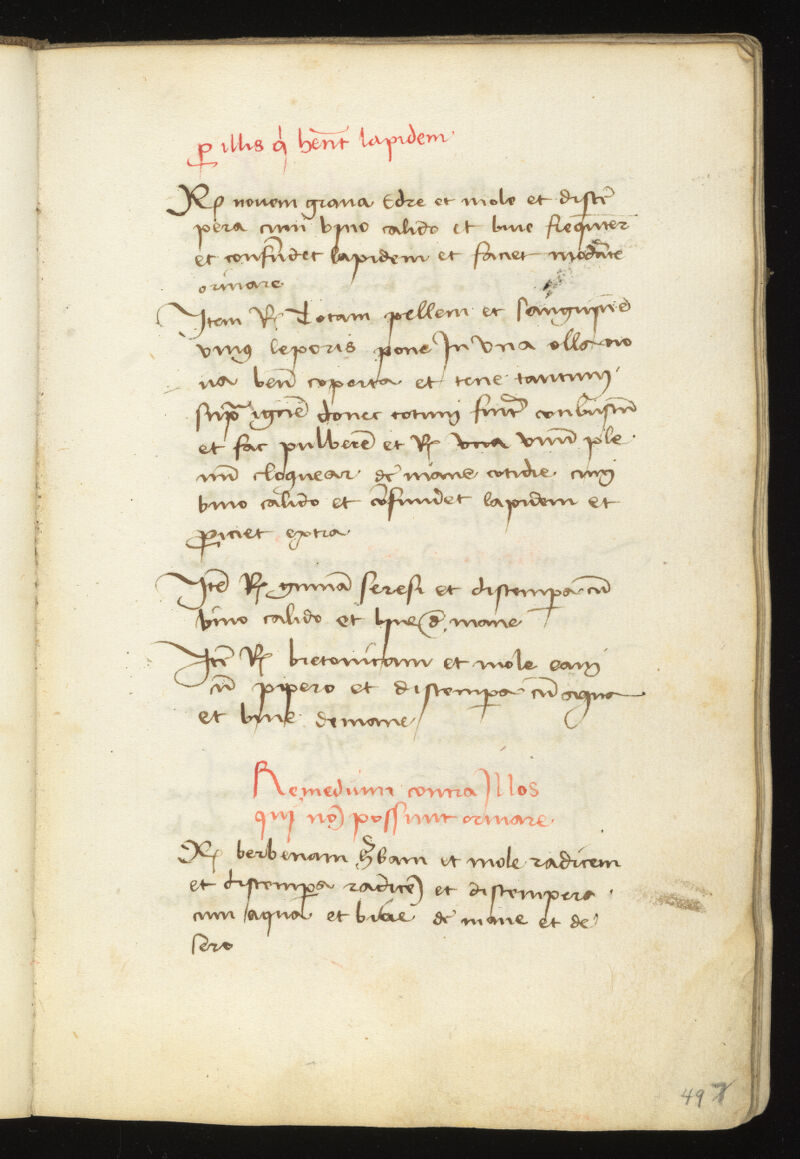 ꝑ illis q̄ hent̄ lapidem
℞ novem grana Edre et mole et distē
pera cum vino calido et bive freq̄nter
et confundet lapidem et faciet modāte
orinare
Item ℞ totam pellem et sanguinē
unius leporis pone In una olla no
va ben̄ coperta et tene tantum
supra igiē donec totum fuit̄ conbustū
et fac pulverē et ℞ unū ple
nū cloquear de mane cotidie cum
vino calido et cōfundet lapidem et
ꝓiciet extra
Itē ℞ gumā seresi et distempa cū
vino calido et bive de mane
Itē ℞ bretonicam et mole eam
cū pipero et distempa cū aqua
et bive demane
Remedium contra Illos
qui nō possunt orinare
℞ berbenam hbam et mole radicem
et distempa radicē et distempera
cum aqua et bive de mane et de
sero
49